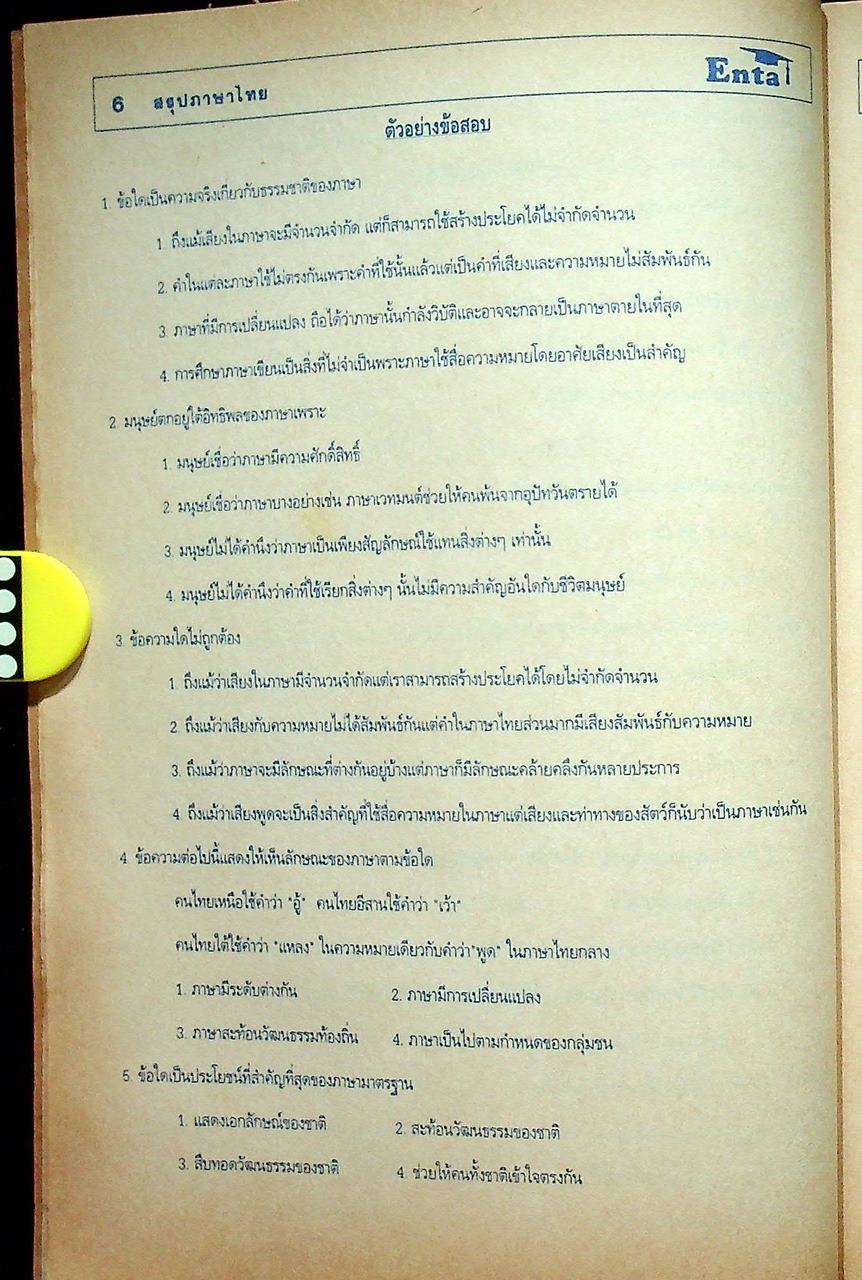 6 สรุปภาษาไทย
Enta
ตัวอย่างข้อสอบ
1. ข้อใดเป็นความจริงเกี่ยวกับธรรมชาติของภาษา
1. ถึงแม้เสียงในภาษาจะมีจำนวนจำกัด แต่ก็สามารถใช้สร้างประโยคได้ไม่จำกัดจำนวน
2. คำในแต่ละภาษาใช้ไม่ตรงกันเพราะคำที่ใช้นั้นแล้วแต่เป็นคำที่เสียงและความหมายไม่สัมพันธ์กัน
3. ภาษาที่มีการเปลี่ยนแปลง ถือได้ว่าภาษานั้นกำลังวิบัติและอาจจะกลายเป็นภาษาตายในที่สุด
4. การศึกษาภาษาเขียนเป็นสิ่งที่ไม่จำเป็นพราะภาษาใช้สื่อความหมายโดยอาศัยเสียงเป็นสำคัญ
2. มนุษย์ตกอยู่ใต้อิทธิพลของภาษาเพราะ
1. มนุษย์เชื่อว่าภาษามีความศักดิ์สิทธิ์
2. มนุษย์เชื่อว่าภาษาบางอย่างเช่น ภาษาเวทมนต์ช่วยให้คนพ้นจากอุปัทวันตรายได้
3. มนุษย์ไม่ได้คำนึงว่าภาษาเป็นเพียงสัญลักษณ์ใช้แทนสิ่งต่างๆ เท่านั้น
4. มนุษย์ไม่ได้คำนึงว่าคำที่ใช้เรียกสิ่งต่างๆ นั้นไม่มีความสำคัญอันใดกับชีวิตมนุษย์
3. ข้อความใดไม่ถูกต้อง
1. ถึงแม้ว่าเสียงในภาษามีจำนวนจำกัดแต่เราสามารถสร้างประโยคได้โดยไม่จำกัดจำนวน
2. ถึงแม้ว่าเสียงกับความหมายไม่ได้สัมพันธ์กันแต่คำในภาษาไทยส่วนมากมีเสียงสัมพันธ์กับความหมาย
3. ถึงแม้ว่าภาษาจะมีลักษณะที่ต่างกันอยู่บ้างแต่ภาษาก็มีลักษณะคล้ายคลึงกันหลายประการ
4. ถึงแม้ว่าเสียงพูดจะเป็นสิ่งสำคัญที่ใช้สื่อความหมายในภาษาแต่เสียงและท่าทางของสัตว์ก็นับว่าเป็นภาษาเช่นกัน
4. ข้อความต่อไปนี้แสดงให้เห็นลักษณะของภาษาตามข้อใด
คนไทยเหนือใช้คำว่า "อู้" คนไทยอีสานใช้คำว่า "เว้า"
คนไทยใต้ใช้คำว่า "แหลง" ในความหมายเดียวกับคำว่า"พูด" ในภาษาไทยกลาง
1. ภาษามีระดับต่างกัน 2. ภาษามีการเปลี่ยนแปลง
3. ภาษาสะท้อนวัฒนธรรมท้องถิ่น 4. ภาษาเป็นไปตามกำหนดของกลุ่มชน
5. ข้อใดเป็นประโยชน์ที่สำคัญที่สุดของภาษามาตรฐาน
1. แสดงเอกลักษณ์ของชาติ 2. สะท้อนวัฒนธรรมของชาติ
3. สืบทอดวัฒนธรรมของชาติ 4. ช่วยให้คนทั้งชาติเข้าใจตรงกัน